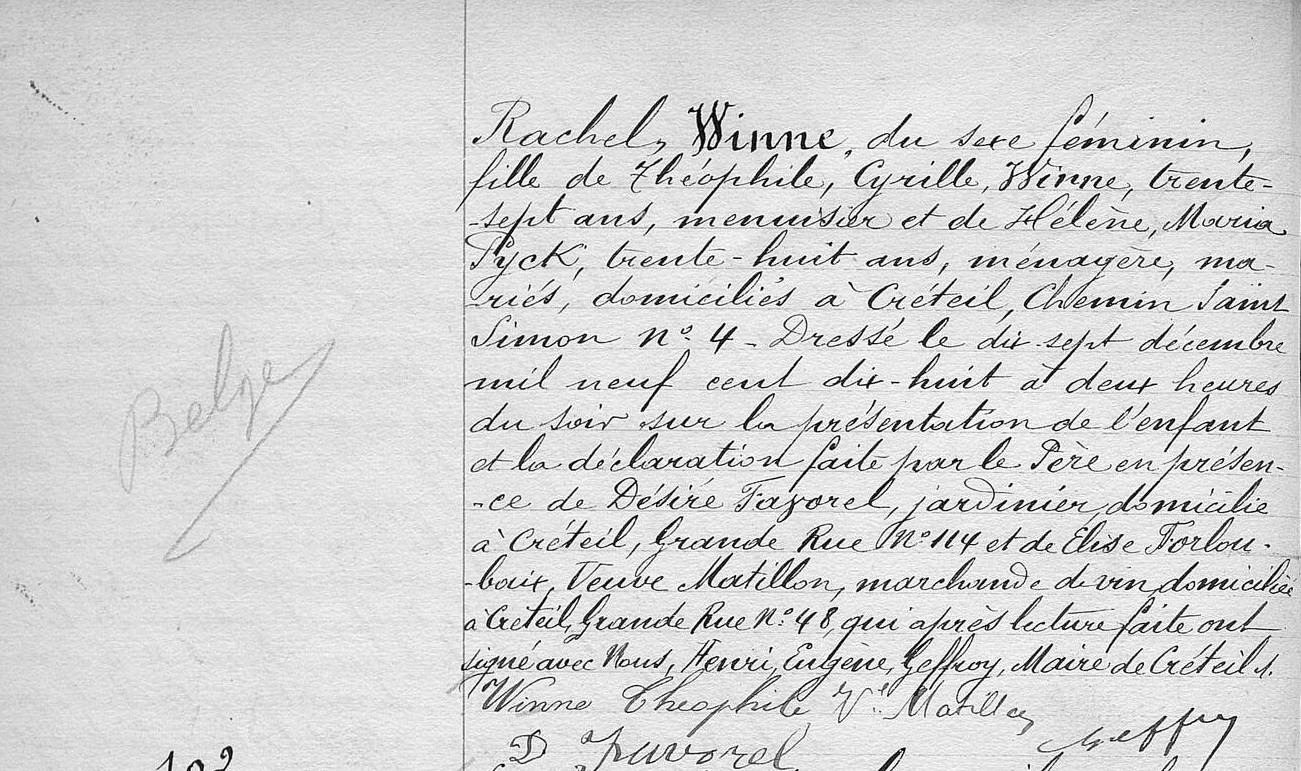 Rachel, Winne, du sexe féminin,
fille de Théophile, Cyrille, Winne, trente-
-sept ans, menuisier et de Hélène, Maria
Pyck, trente-huit ans, ménagère, ma-
-riés, domiciliés à Créteil, Chemin Saint
Simon nº 4 - Dressé le dix-sept décembre
mil neuf cent dix-huit à deux heures
du soir sur la présentation de l'enfant
et la déclaration faite par le Père en présen-
-ce de Désiré Favorel, jardinier, domicilié
à Créteil, Grande Rue Nº 114 et de Élise Forlou-
-baix, Veuve Matillon, marchande de vin, domiciliée
à Créteil, Grande Rue Nº 48, qui après lecture faite ont
signé avec Nous, Henri, Eugène, Geffroy, Maire de Créteil ./.
Belge
Winne Théophile Vve Matillon
Geffroy
D Favorel